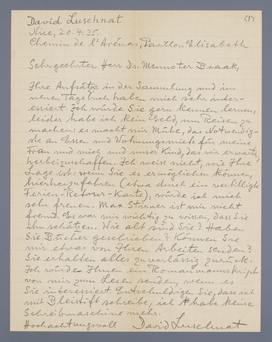 (1)
David Luschnat
Nice, 20.4.35.
Chemin de l'Arénas, Pavillon Elisabeth
Sehr geehrter Herr Dr. Menno ter Braak,
Ihre Aufsätze in der Sammlung und im
neuen Tagebuch haben mich sehr inter-
essiert. Ich würde Sie gern kennen lernen,
leider habe ich kein Geld, um Reisen zu
machen; es macht mir Mühe, das Notwendig-
ste an Essen und Wohnungsmiete für meine
Frau und mich und unser Kind, das wir erwarten,
herbeizuschaffen. Ich weiss nicht, wie Ihre
Lage ist; wenn Sie es ermöglichen können,
hierherzufahren (etwa durch eine verbilligte
Ferien-Retour-Karte), würde ich mich
sehr freuen. Max Stirner ist mir nicht
fremd. Es war mir wichtig zu wissen, dass Sie
ihn schätzen. Wie alt sind Sie? Haben
Sie Bücher geschrieben? Können Sie
mir etwas von Ihren Arbeiten senden?
Sie erhalten alles zuverlässig zurück.
Ich würde Ihnen ein Romanmanuskript
von mir zum Lesen senden, wenn es
Sie interessiert. Entschuldigen Sie, dass ich
mit Bleistift schreibe, ich habe keine
Schreibmaschine mehr.
Hochachtungsvoll David Luschnat